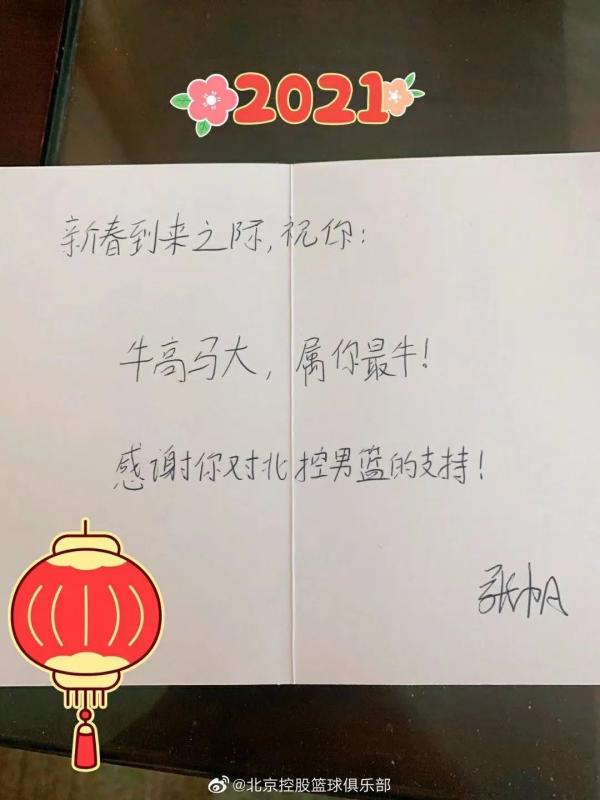 2021
新春到来之际,祝你:
牛高马大,属你最牛!
感谢你对北控男篮的支持!
张帆
@北京控股篮球俱乐部